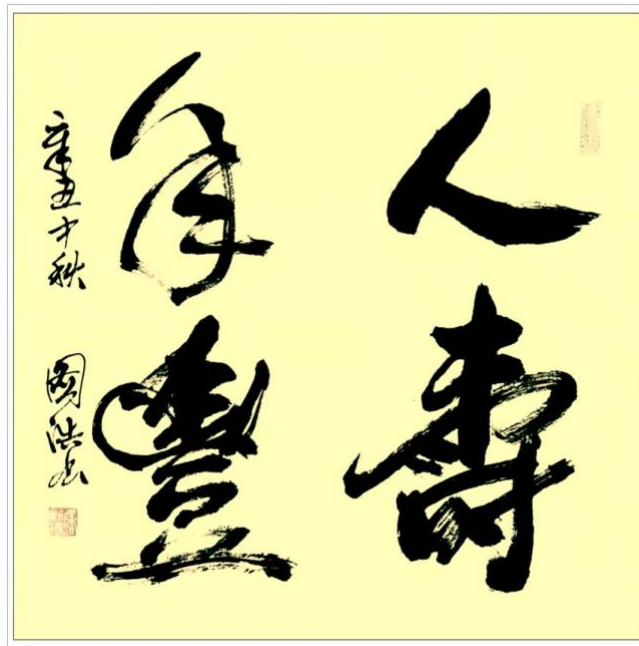 人壽
年豐
辛丑中秋
國浩书